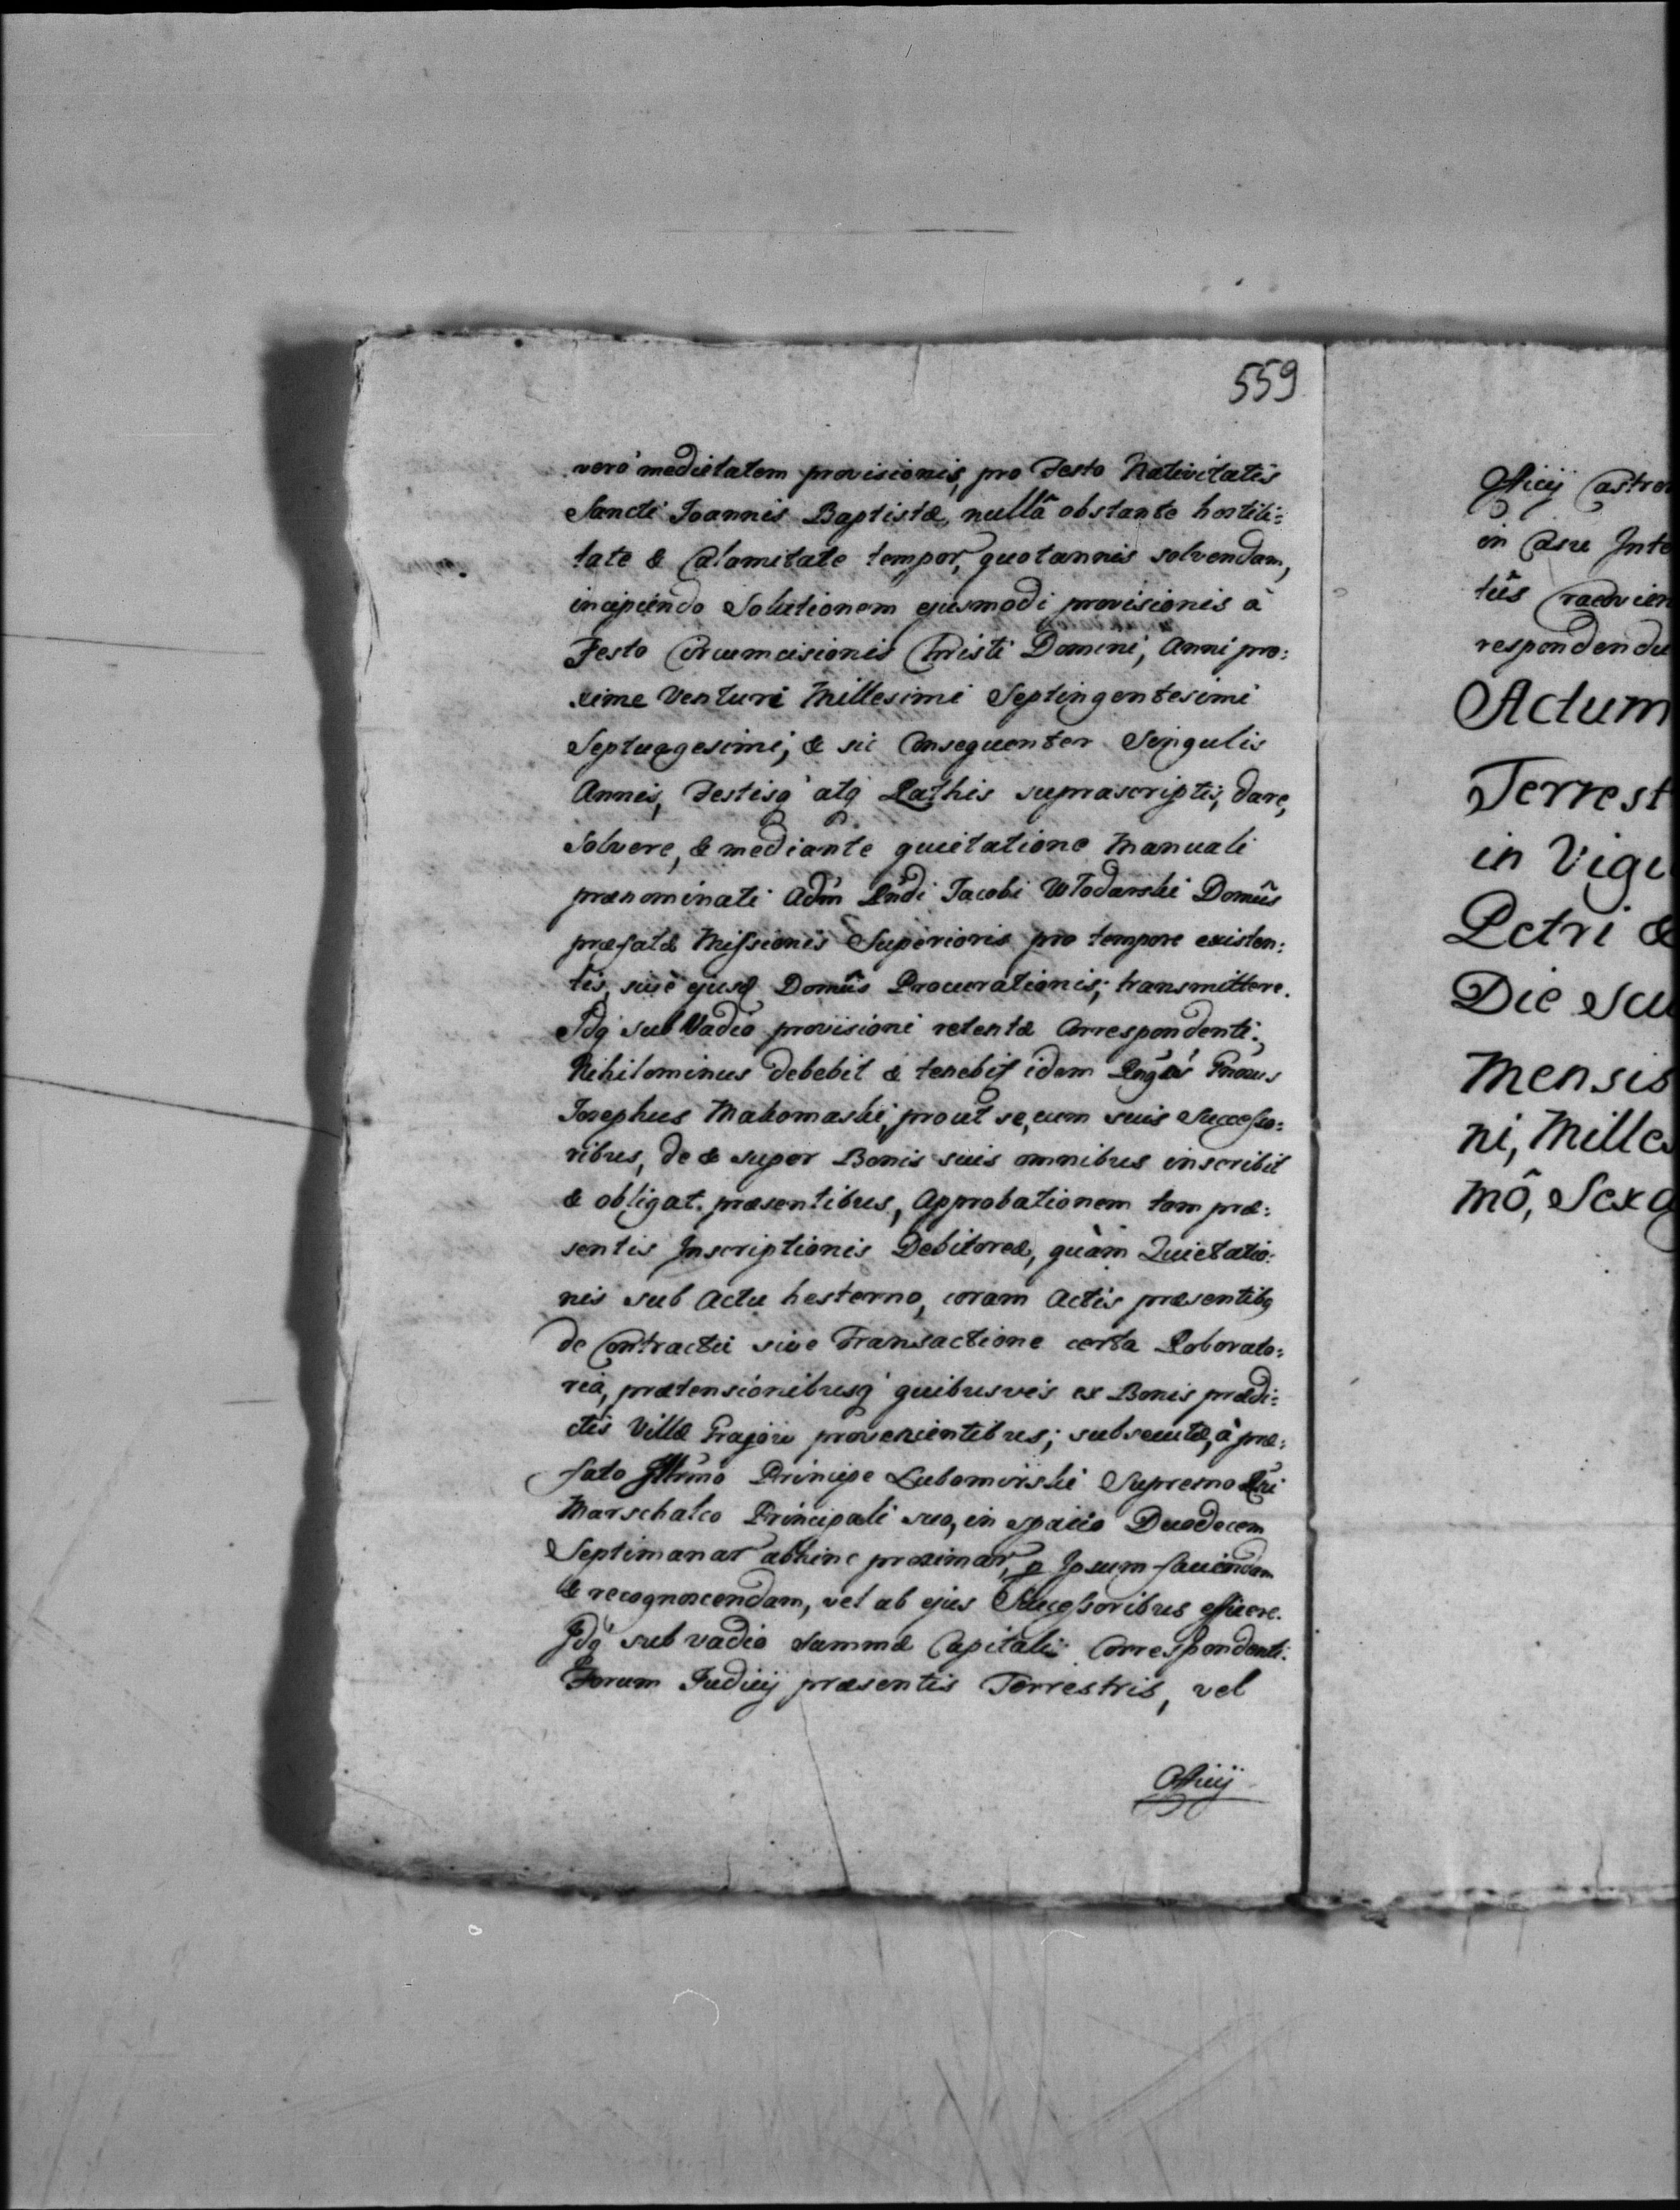 559
verò medietatem provisionis, pro Festo Nativitatis
Sancti Joannis Baptistæ, nullâ obstante hostili:
tate & Calamitate tempor, quotannis solvendam,
incipiendo Solutionem ejusmodi provisionis à
Festo Circumcisionis Christi Domini, Anni pro:
xime Venturi Millesimi Septingentesimi
Septuagesimi, & sic Consequenter Singulis
Annis, Festisq́ atq́ Rathis suprascriptis, dare,
Solvere, & mediante quietatione Manuali
prænominati Adm̃ Rñdi Jacobi Włodarski Domûs
præfatæ Missionis Superioris pro tempore existen:
tis, sivè ejusd Domûs Procurationis, transmittere.
Idq́ sub Vadio provisioni retentæ Correspondenti;
Nihilominus debebit & tenebit idem Gñosus
Josephus Makomaski, prout se, cum suis Successo:
ribus, de & super Bonis suis omnibus inscribit
& obligat præsentibus, Approbationem tam præ:
sentis Inscriptionis Debitoreæ, quàm Quietatio:
nis sub Actu hesterno, coram Actis præsentibq
de Contractu sive Transactione certa Roborato:
ria, prætensionibusq́ quibusvis ex Bonis prædi:
ctis Villæ provenientibus; subsecutæ, à præ:
fato Illr̃mo Principe Lubomirski Supremo Rñi
Marschalco Principali suo, in spatio Duodecem
Septimanar abhinc proximar, p Ipsum faciendam
& recognoscendam, vel ab ejus Successoribus efficere.
Idq́ sub vadio Summæ Capitali Correspondenti.
Forum Judicij præsentis Terrestris, vel
Officij
Officij Castren
in Casu Inte
tûs Cracovien
respondendu
Actum
Terrest
in Vigi
Petri &
Die
Mensis
ni, Milles
mô, Sexa